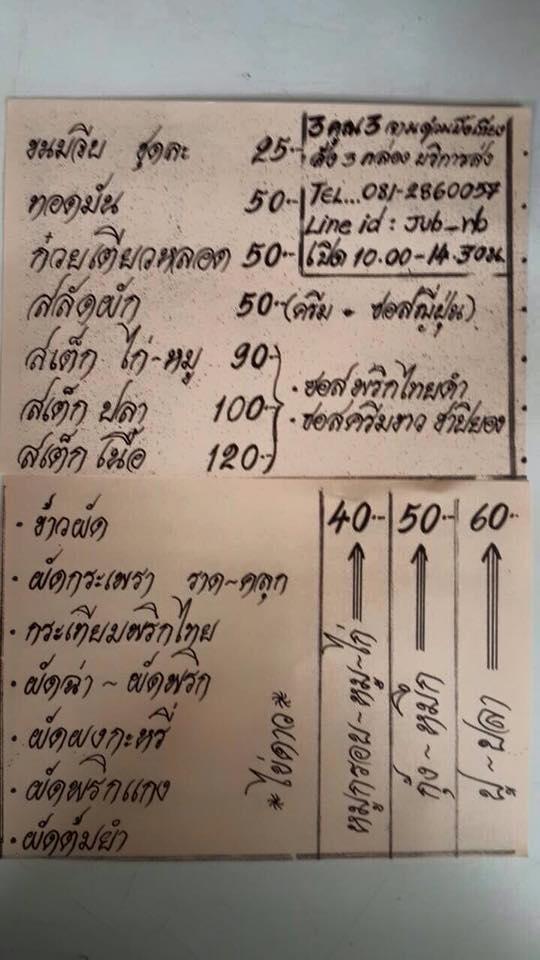 ขนมจีบ ชุดละ 25.-
ทอดมัน 50.-
ก๋วยเตี๋ยวหลอด 50.-
สลัดผัก 50.- (ครีม - ซอสญี่ปุ่น)
สเต็ก ไก่-หมู 90.-
สเต็ก ปลา 100.-
สเต็ก เนื้อ 120.-
• ซอสพริกไทยดำ
• ซอสครีมขาว ชาปียอง
3 คูณ 3
สั่ง 3 กล่อง บริการส่ง
TEL...081-2860057
Line id : Jub_rb
เปิด 10.00-14.30น.
40.- 50.- 60.-
• ข้าวผัด
• ผัดกระเพรา ราด~คลุก
• กระเทียมพริกไทย
• ผัดฉ่า ~ ผัดพริก
• ผัดผงกะหรี่
• ผัดพริกแกง
• ผัดต้มยำ
*ไข่ดาว*
หมูกรอบ~หมู~ไก่
กุ้ง~หมึก
ปู~ปลา